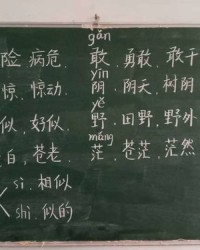 gǎn
险 病危. 敢. 勇敢. 敢于
yīn
惊. 惊动. 阴. 阴天. 树阴
yě
似. 好似. 野. 田野. 野外
máng
白. 苍老. 茫. 苍茫. 茫然
sì. 相似
shì. 似的